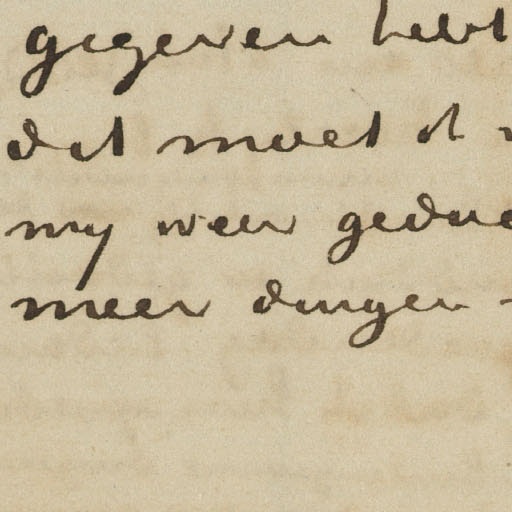 gegeven hebt
dit moet ik
my weer gedu
meer dingen